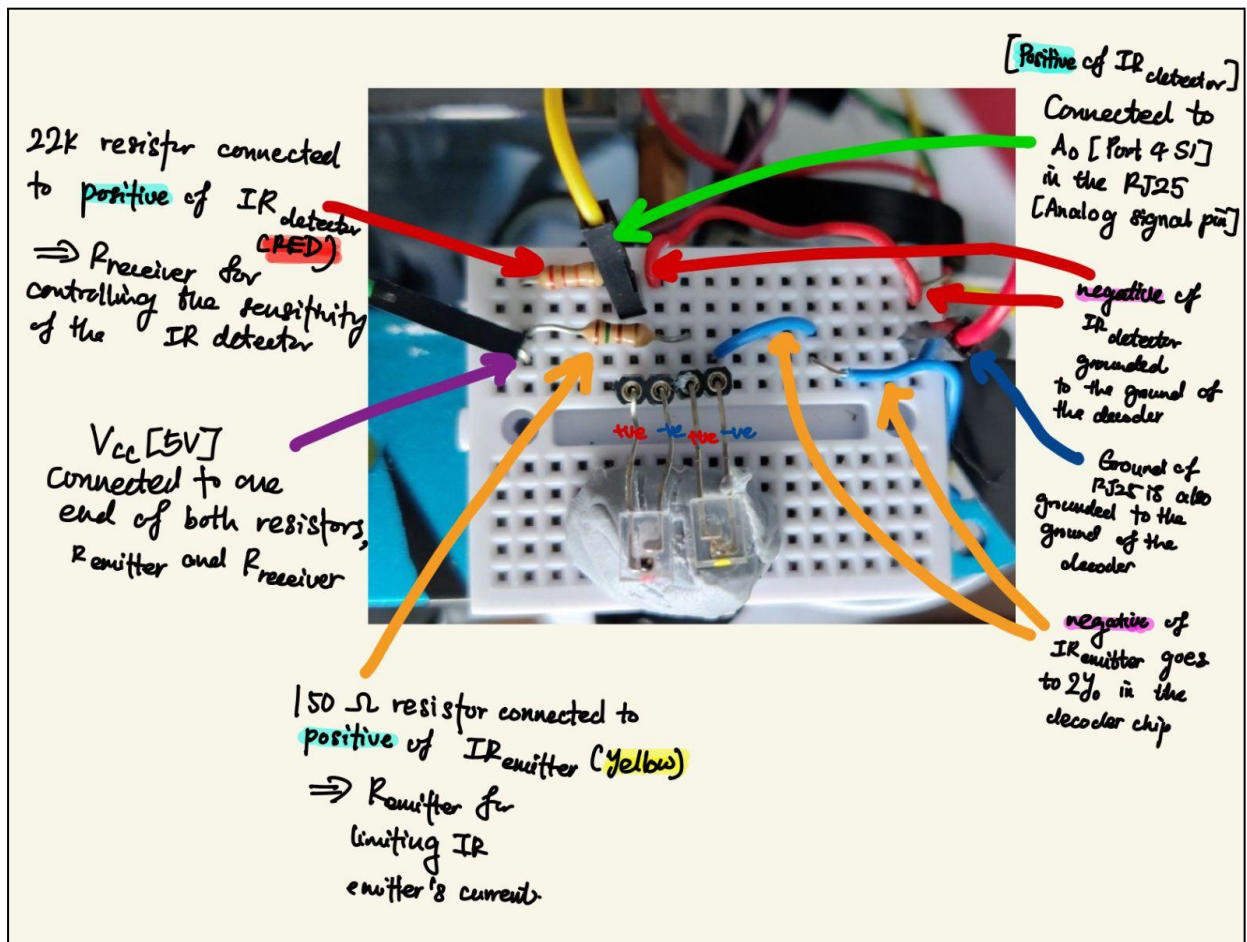 22K resistor connected
to positive of IR detector
(RED)
⇒ Rreceiver for
controlling the sensitivity
of the IR detector
Vcc [5V]
Connected to one
end of both resistors,
Remitter and Rreceiver
150 Ω resistor connected to
positive of IR emitter (Yellow)
⇒ Remitter for
limiting IR
emitter's current.
+ve -ve +ve -ve
[Positive of IR detector]
Connected to
A0 [Port 4 S1]
in the RJ25
[Analog signal pin]
negative of
IR detector
grounded
to the ground of
the decoder
Ground of
RJ25 is also
grounded to the
ground of the
decoder
negative of
IR emitter goes
to 2Y0 in the
decoder chip